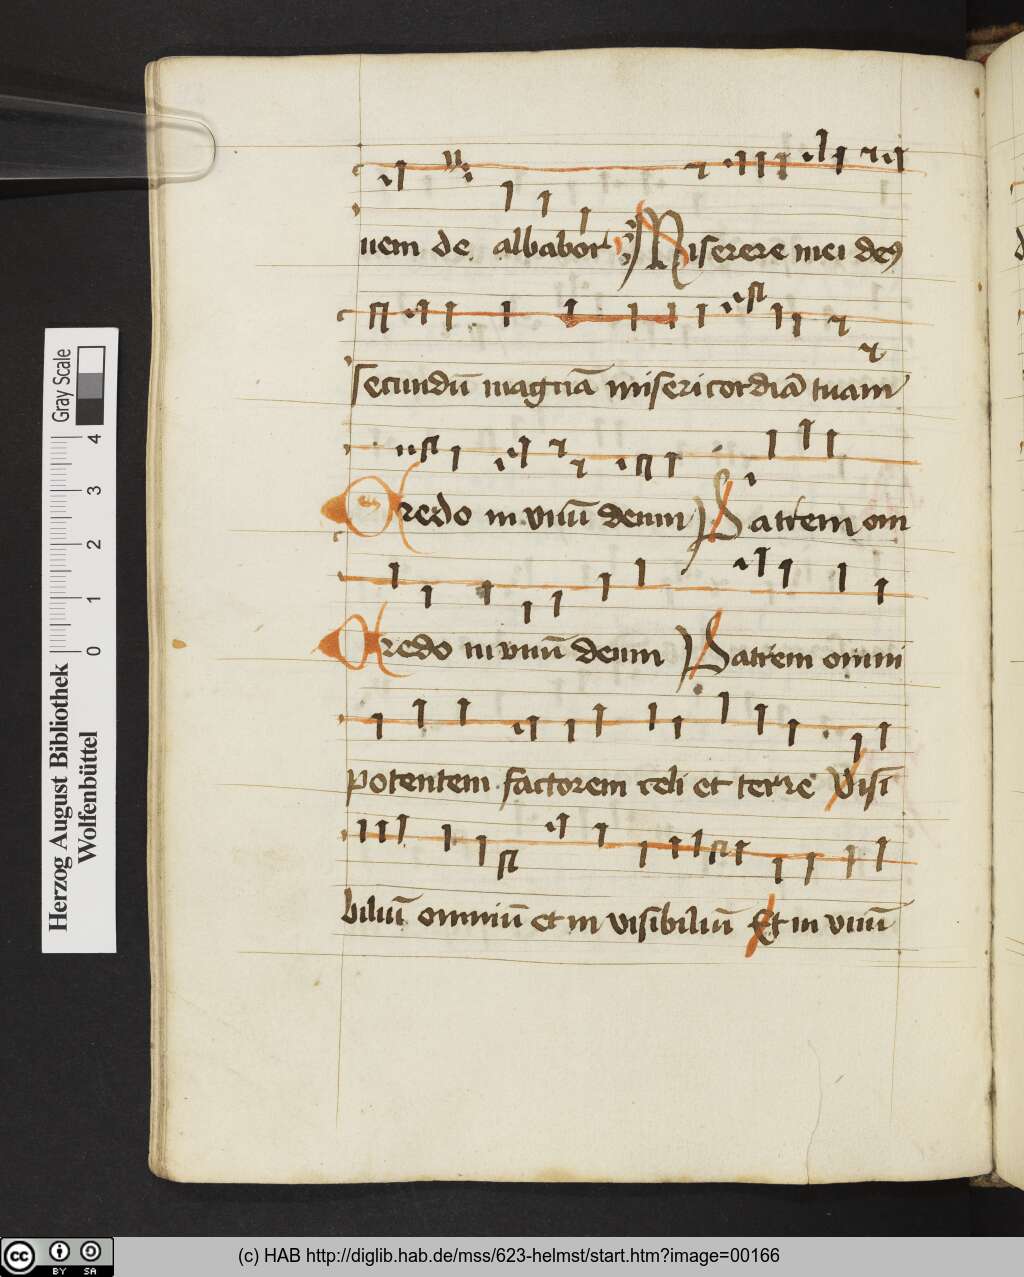 uem de albabor Miserere mei deꝰ
secundū magnā misericordiā tuam
Credo in vnū deum Patrem om
Credo in vnū deum Patrem omni
potentem factorem celi et terre Visi
biliū omniū et in visibiliū Et in vnū
Herzog August Bibliothek
Wolfenbüttel
0 1 2 3 4
Gray Scale
cc BY SA
(c) HAB http://diglib.hab.de/mss/623-helmst/start.htm?image=00166